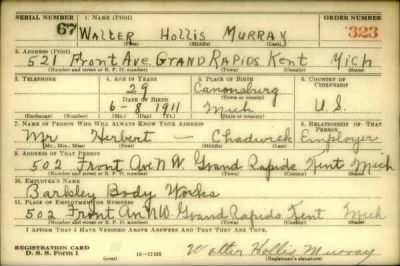 SERIAL NUMBER 1. NAME (Print) ORDER NUMBER
67 WALTER Hollis MURRAY 323
(First) (Middle) (Last)
2. ADDRESS (Print)
521 Front Ave GRAND RAPIDS Kent Mich
(Number and street or R. F. D. number) (Town) (County) (State)
3. TELEPHONE 4. AGE IN YEARS 5. PLACE OF BIRTH 6. COUNTRY OF CITIZENSHIP
29 Canonsburg
DATE OF BIRTH (Town or county)
6-8 1911 Mich U.S.
(Exchange) (Number) (Mo.) (Day) (Yr.) (State or country)
7. NAME OF PERSON WHO WILL ALWAYS KNOW YOUR ADDRESS 8. RELATIONSHIP OF THAT PERSON
Mr Herbert — Chadwick Employer
(Mr., Mrs., Miss) (First) (Middle) (Last)
9. ADDRESS OF THAT PERSON
502 Front Av N.W. Grand Rapids Kent Mich
(Number and street or R. F. D. number) (Town) (County) (State)
10. EMPLOYER'S NAME
Barkley Body Works
11. PLACE OF EMPLOYMENT OR BUSINESS
502 Front Av N.W. Grand Rapids Kent Mich
(Number and street or R. F. D. number) (Town) (County) (State)
I AFFIRM THAT I HAVE VERIFIED ABOVE ANSWERS AND THAT THEY ARE TRUE.
REGISTRATION CARD
D. S. S. Form 1 16—17105 Walter Hollis Murray
(Registrant's signature)